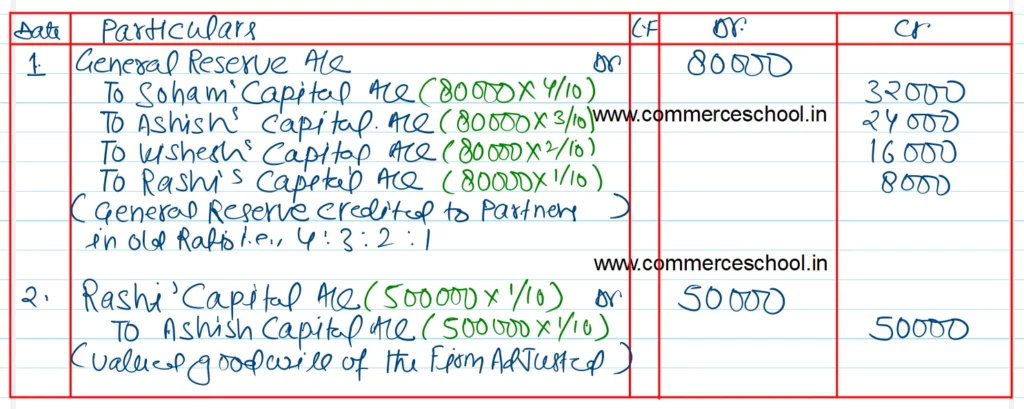 Date Particulars L.F Dr. Cr
1. General Reserve A/c Dr 80000
To Soham' Capital A/c (80000 x 4/10) 32000
To Ashish's Capital. A/c (80000 x 3/10) www.commerceschool.in 24000
To Vishesh's Capital A/c (80000 x 2/10) 16000
To Rashi's Capital A/c (80000 x 1/10) 8000
(General Reserve credited to Partners)
in old Ratio i.e., 4:3:2:1
www.commerceschool.in
2. Rashi' Capital A/c (500000 x 1/10) Dr 50000
To Ashish Capital A/c (500000 x 1/10) 50000
(Value of goodwill of the Firm Adjusted)